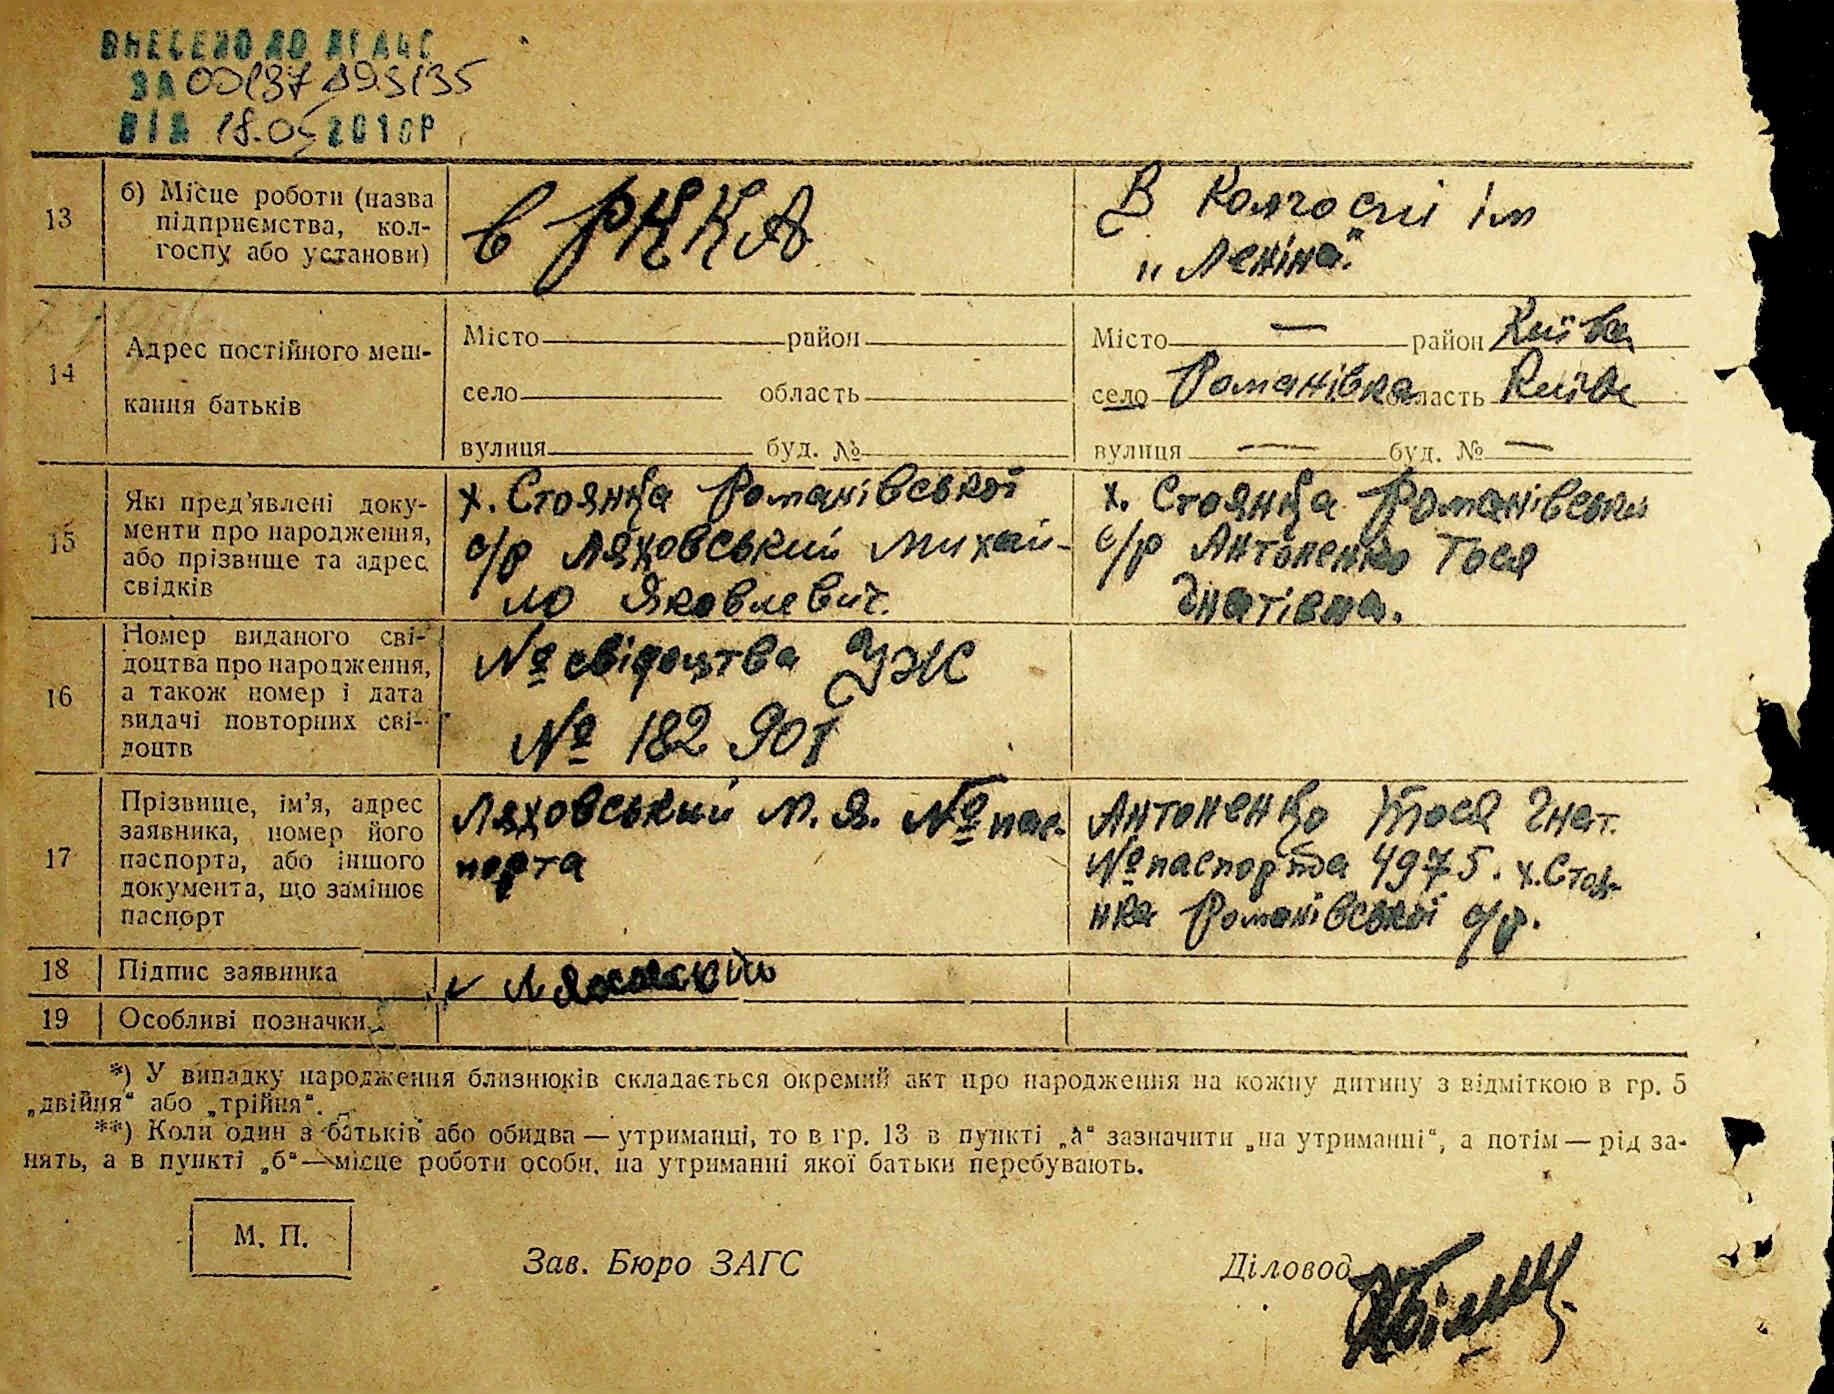 ВНЕСЕНО ДО ДРАЦС
ЗА 00137193135
ВІД 18.05 2010Р
13
б) Місце роботи (назва
підприємства, кол-
госпу або установи)
в РККА
В колгоспі ім
"Леніна".
14
Адрес постійного меш-
кання батьків
Місто район
село область
вулиця буд. №
Місто — район Київс
село Романівка область Київс
вулиця — буд. № —
15
Які пред'явлені доку-
менти про народження,
або прізвище та адрес
свідків
х. Стоянка Романівської
с/р Ляховський Михай-
ло Яковлевич.
х. Стоянка Романівськи
с/р Антоненко Тося
Гнатівна.
16
Номер виданого сві-
доцтва про народження,
а також номер і дата
видачі повторних сві-
доцтв
№ свідоцтва УЖ
№ 182 901
17
Прізвище, ім'я, адрес
заявника, номер його
паспорта, або іншого
документа, що замінює
паспорт
Ляховський М. Я. № пас-
порта
Антоненко Тося Гнат.
№ паспорта 4975. х. Стоя-
нка Романівської с/р.
18
Підпис заявника
Ляховський
19
Особливі позначки
*) У випадку народження близнюків складається окремий акт про народження на кожну дитину з відміткою в гр. 5
„двійня“ або „трійня“.
**) Коли один з батьків або обидва — утриманці, то в гр. 13 в пункті „а“ зазначити „на утриманні“, а потім — рід за-
нять, а в пункті „б“ — місце роботи особи, на утриманні якої батьки перебувають.
М. П.
Зав. Бюро ЗАГС
Діловод